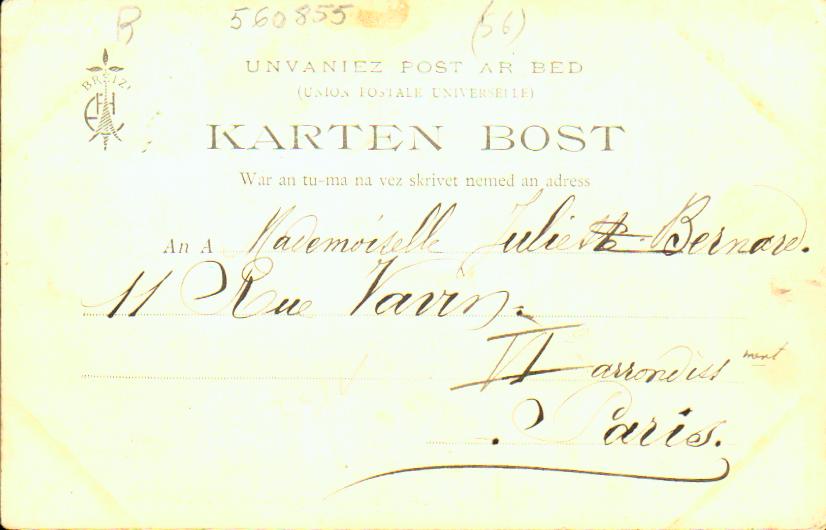 B 560855 (56)
BREIZ
UNVANIEZ POST AR BED
(UNION POSTALE UNIVERSELLE)
KARTEN BOST
War an tu-ma na vez skrivet nemed an adress
An A Mademoiselle Juliette Bernard.
11 Rue Vavin.
VI arrondissment
Paris.